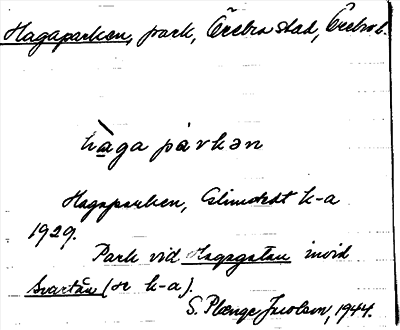 Hagaparken, park, Örebro stad, Örebro l.
hàga pàrkən
Hagaparken, Almstedt k-a
1929.
Park vid Hagagatan invid
Svartån (or k-a).
S. Plenge Jacobson, 1944.